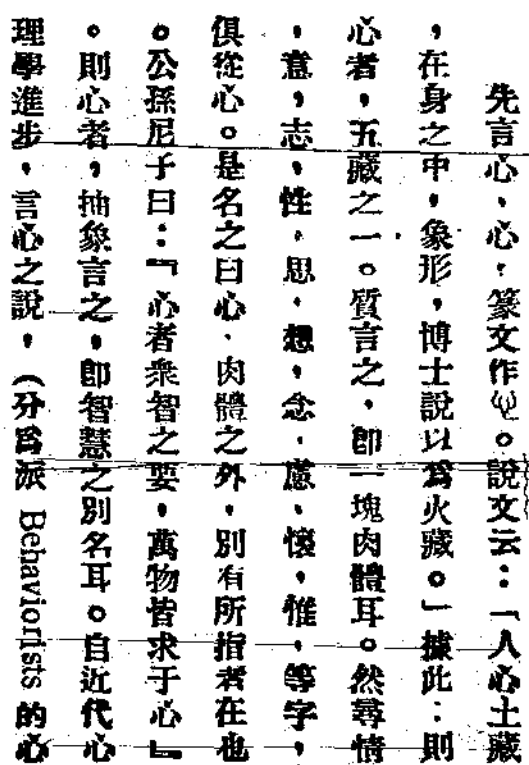 先言心、心，篆文作。說文云：「人心土藏
，在身之中，象形，博士說以爲火藏。」據此：則
心者，五藏之一。質言之，卽一塊肉體耳。然尋情
，意，志，性，思，想，念，慮，懷，惟，等字，
俱從心。是名之曰心，肉體之外，別有所指者在也
。公孫尼子曰：『心者衆智之要，萬物皆求于心』
。則心者，抽象言之，卽智慧之別名耳。自近代心
理學進步，言心之說，（分爲派 Behaviorists 的心